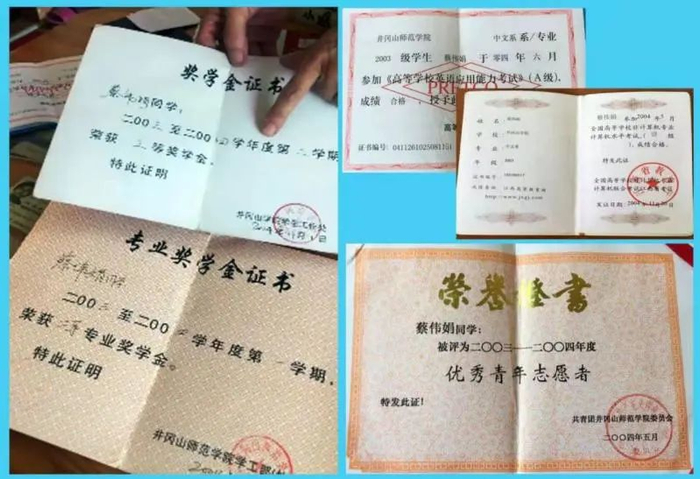 奖学金证书
蔡伟娟同学:
二00三至二00四学年度第二学期,
荣获三等奖学金。
特此证明
井冈山学院学工处
专业奖学金证书
二00三至二00四学年度第一学期,
荣获三等专业奖学金。
特此证明
井冈山师范学院学工部(处)
井冈山师范学院 中文系 系/专业
2003 级学生 蔡伟娟 于 零四 年 六 月
参加《高等学校英语应用能力考试》(A级),
成绩 合格 ,授予此
PRETCO
证书编号:
蔡伟娟 2004 年 5 月
成绩合格。
特发此证
荣誉证书
蔡伟娟同学:
被评为二〇〇三——二〇〇四年度
优秀青年志愿者
特发此证!
共青团井冈山师范学院委员会
二〇〇四年五月